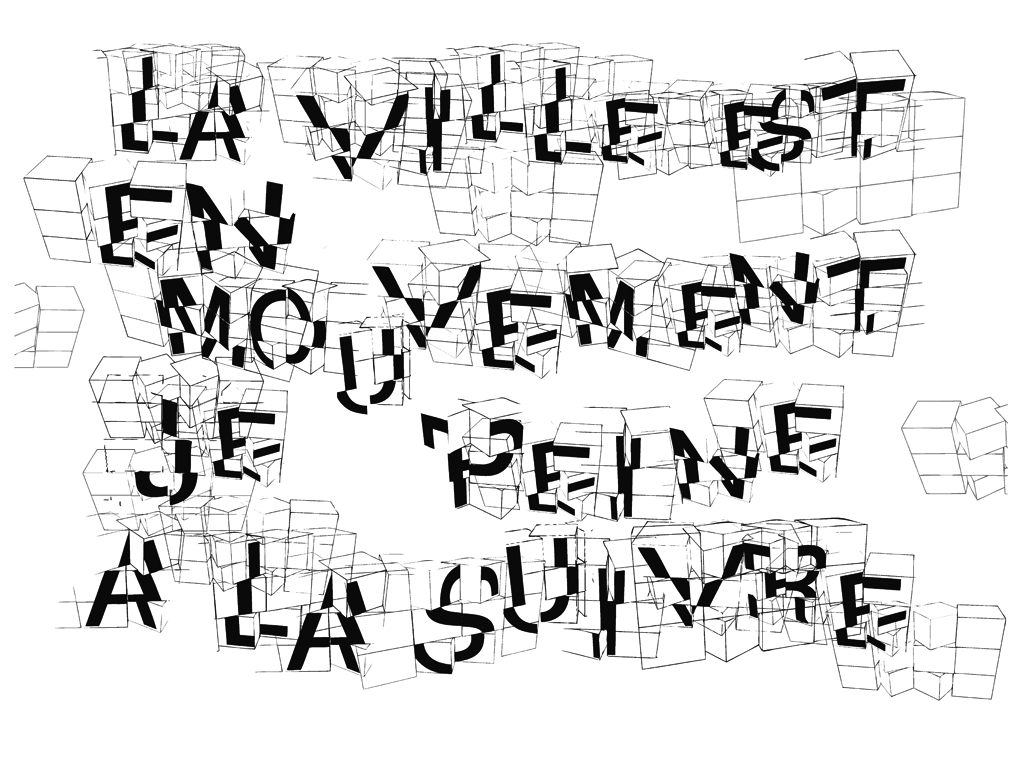 LA VILLE EST
EN
MOUVEMENT
JE PEINE
A LA SUIVRE